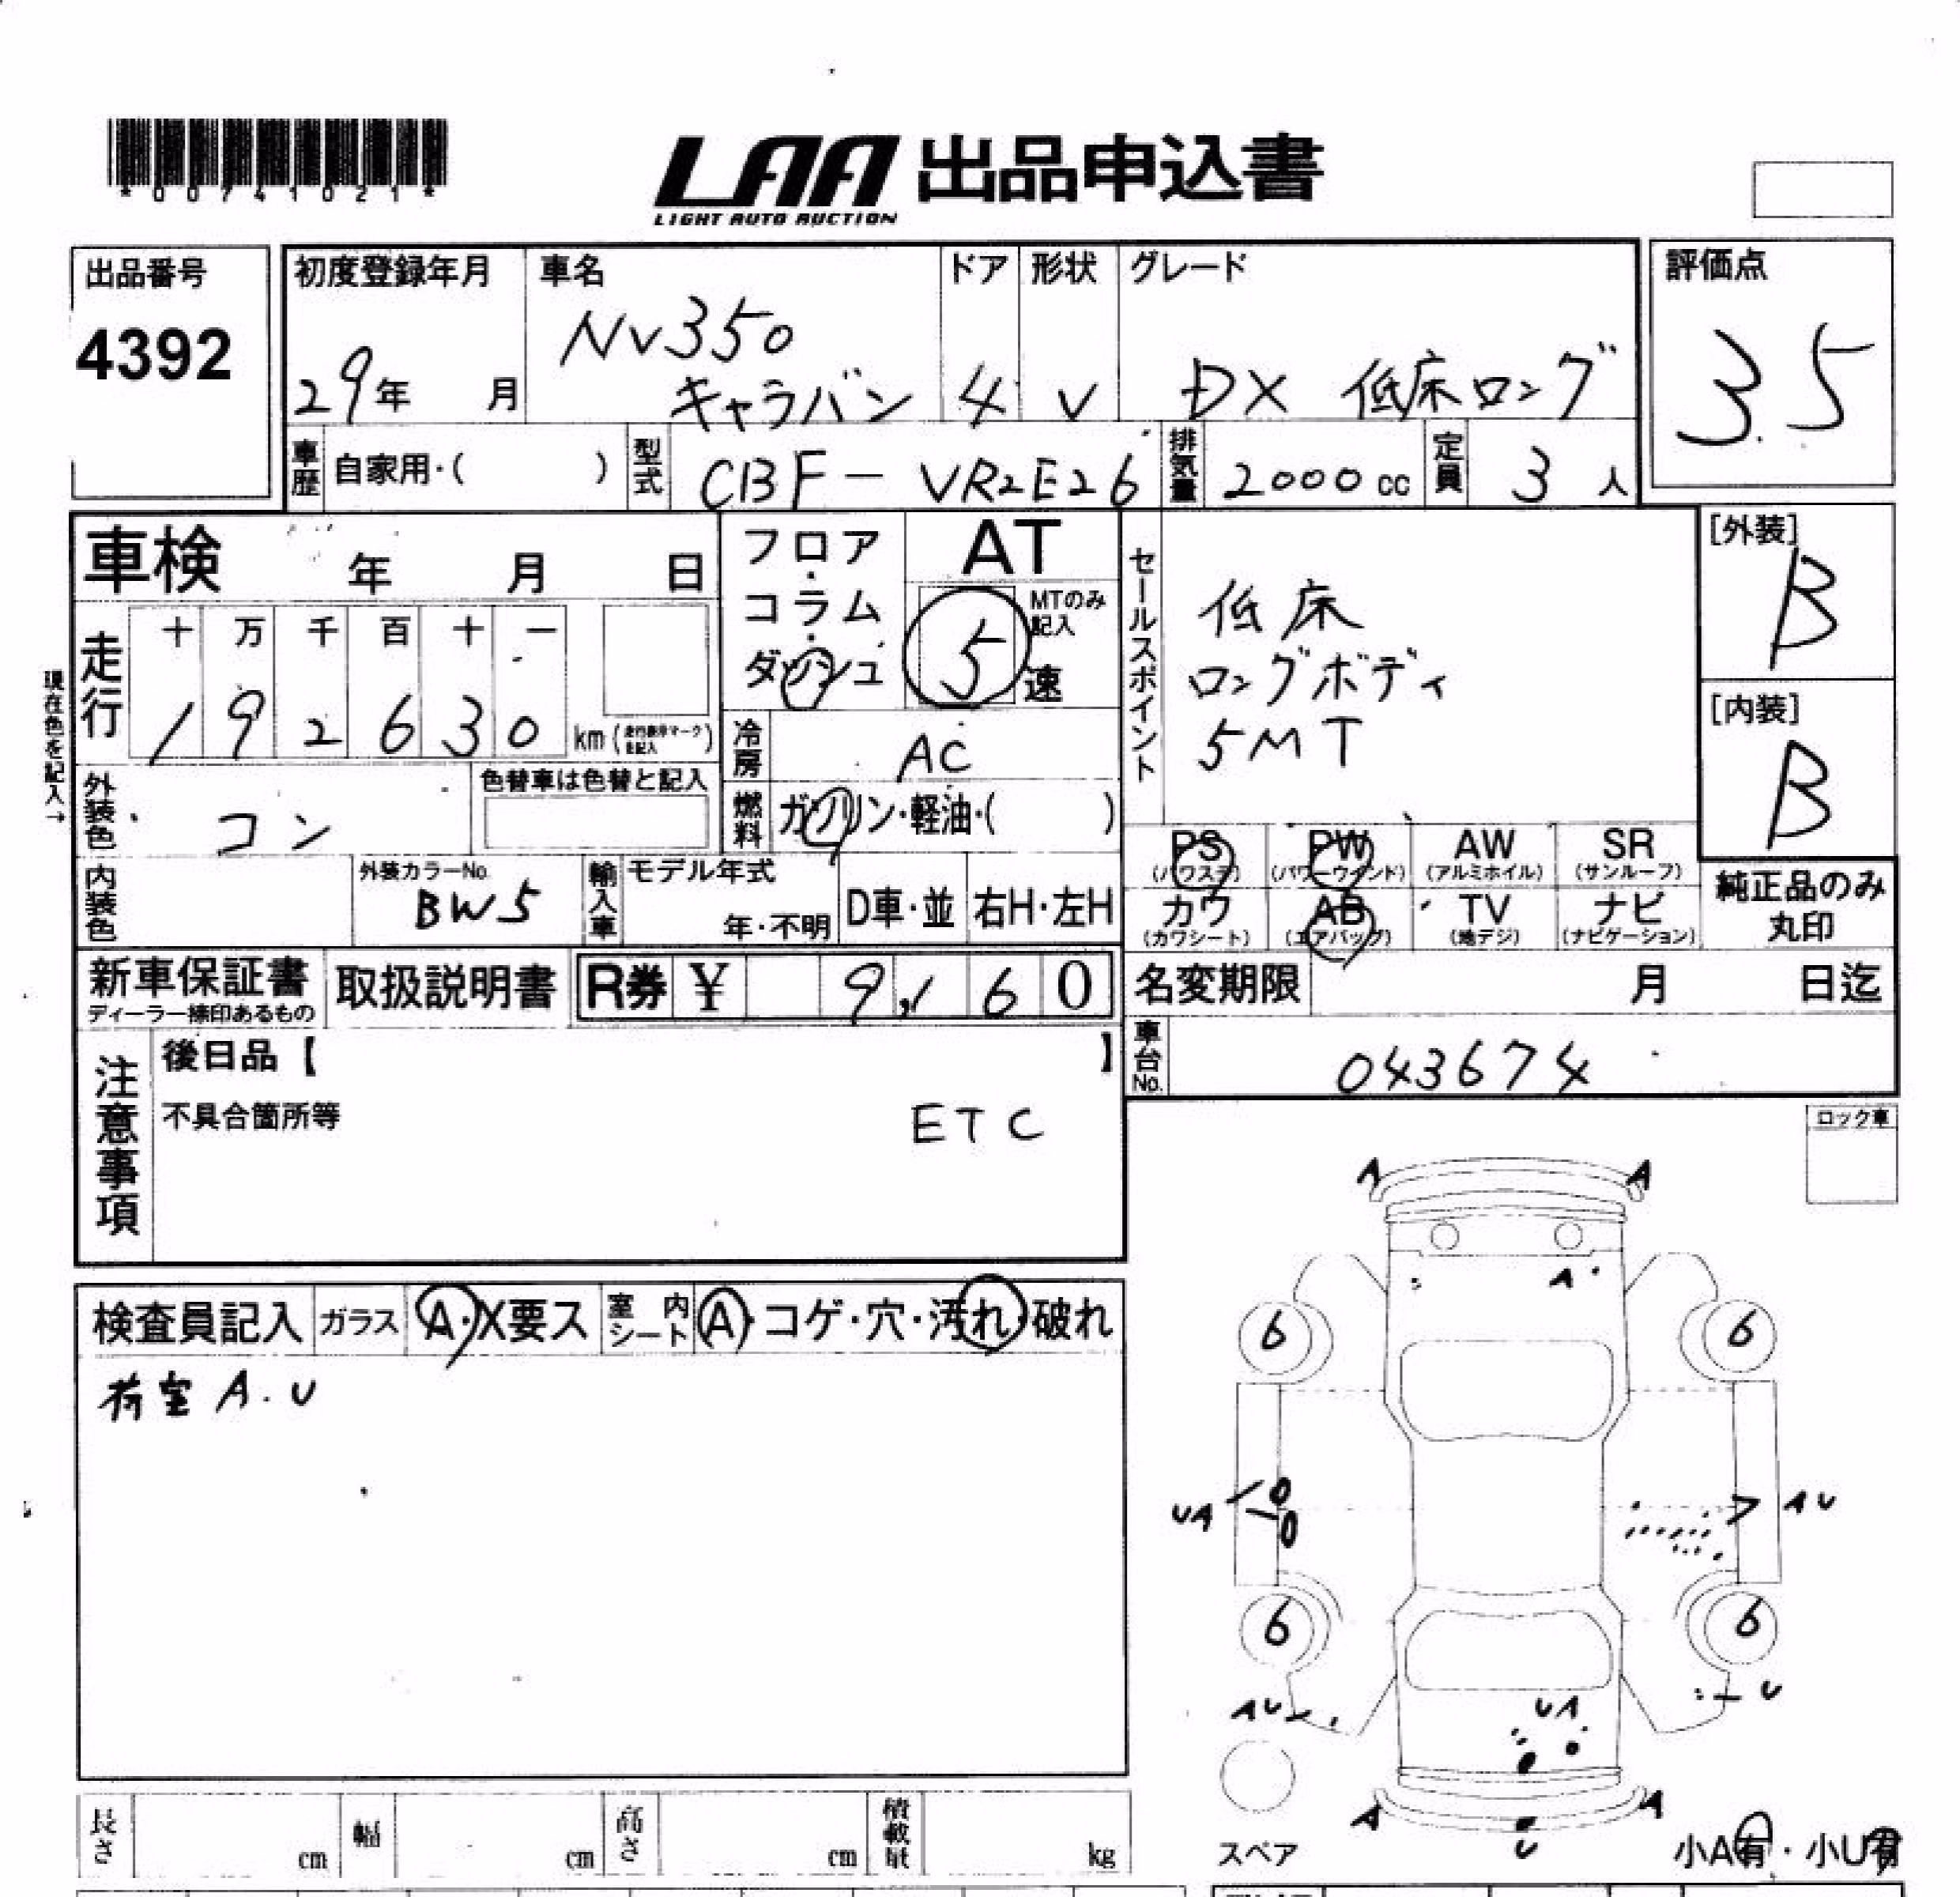 *00741021*
LAA 出品申込書
LIGHT AUTO AUCTION
出品番号
4392
初度登録年月
29年 月
車名
NV350
キャラバン
ドア
4
形状
V
グレード
DX 低床ロング
評価点
3.5
車歴 自家用・( )
型式 CBF-VR2E26
排気量 2000cc
定員 3人
車検 年 月 日
フロア・コラム・ダッシュ
AT
MTのみ記入
5速
セールスポイント
低床
ロングボディ
5MT
[外装]
B
[内装]
B
現在色を記入→
走行
十 万 千 百 十 一
1 9 2 6 3 0 km
冷房 AC
燃料 ガソリン・軽油・( )
外装色 コン
色替車は色替と記入
内装色
外装カラーNo.
BW5
輸入車
モデル年式
年・不明
D車・並
右H・左H
PS (パワステ)
PW (パワーウインド)
AW (アルミホイル)
SR (サンルーフ)
カワ (カワシート)
AB (エアバッグ)
TV (地デジ)
ナビ (ナビゲーション)
純正品のみ
丸印
新車保証書
ディーラー捺印あるもの
取扱説明書
R券 ¥ 9,160
名変期限 月 日迄
車台No. 043674
注意事項
後日品【 】
不具合箇所等
ETC
ロック車
検査員記入
ガラス A・X要ス
室内シート A・コゲ・穴・汚れ・破れ
荷室 A.U
A A
A
6 6
UA AU
6 6
AU U
UA
A A
U
スペア
小A有・小U有
長さ cm
幅 cm
高さ cm
積載量 kg